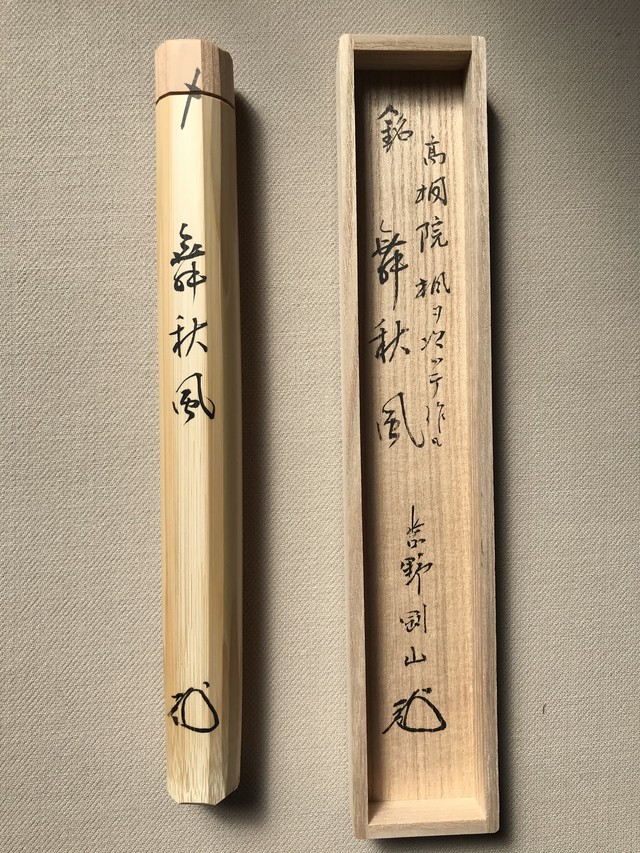 〆
舞秋風
高桐院楓ヲ以ッテ作ル
銘 舞秋風
紫野剛山